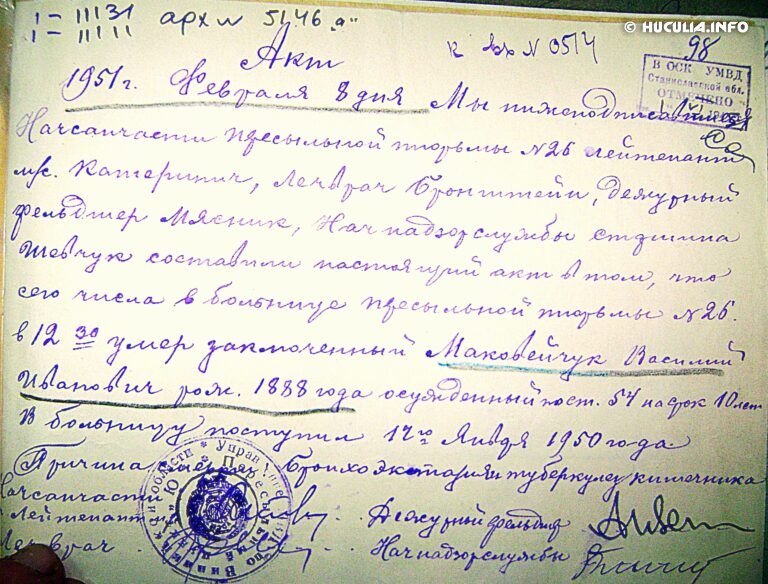 © HUCULIA.INFO
1 - 11131 арх № 5146 "а"
1 - 11111
к вх № 0514
98
Акт
В ОСК УМВД
Станиславской обл.
ОТМЕЧЕНО
1951 г. Февраля 8 дня Мы нижеподписавшиеся
Начсанчасти пресыльной тюрьмы №26 лейтенант
м/с. Катеринич, Лечврач Бронштейн, дежурный
фельдшер Мясник, Нач надзорслужбы старшина
Шевчук составили настоящий акт в том, что
сего числа в больнице пресыльной тюрьмы №26.
в 12 30 умер заключенный Маковейчук Василий
Иванович рож. 1888 года осужденный по ст. 54 на срок 10 лет
В больницу поступил 17го Января 1950 года
Причина смерти Бронхоэктазия и туберкулез кишечника
Начсанчасти
Лейтенант Дежурный фельдшер
Лечврач Нач надзорслужбы